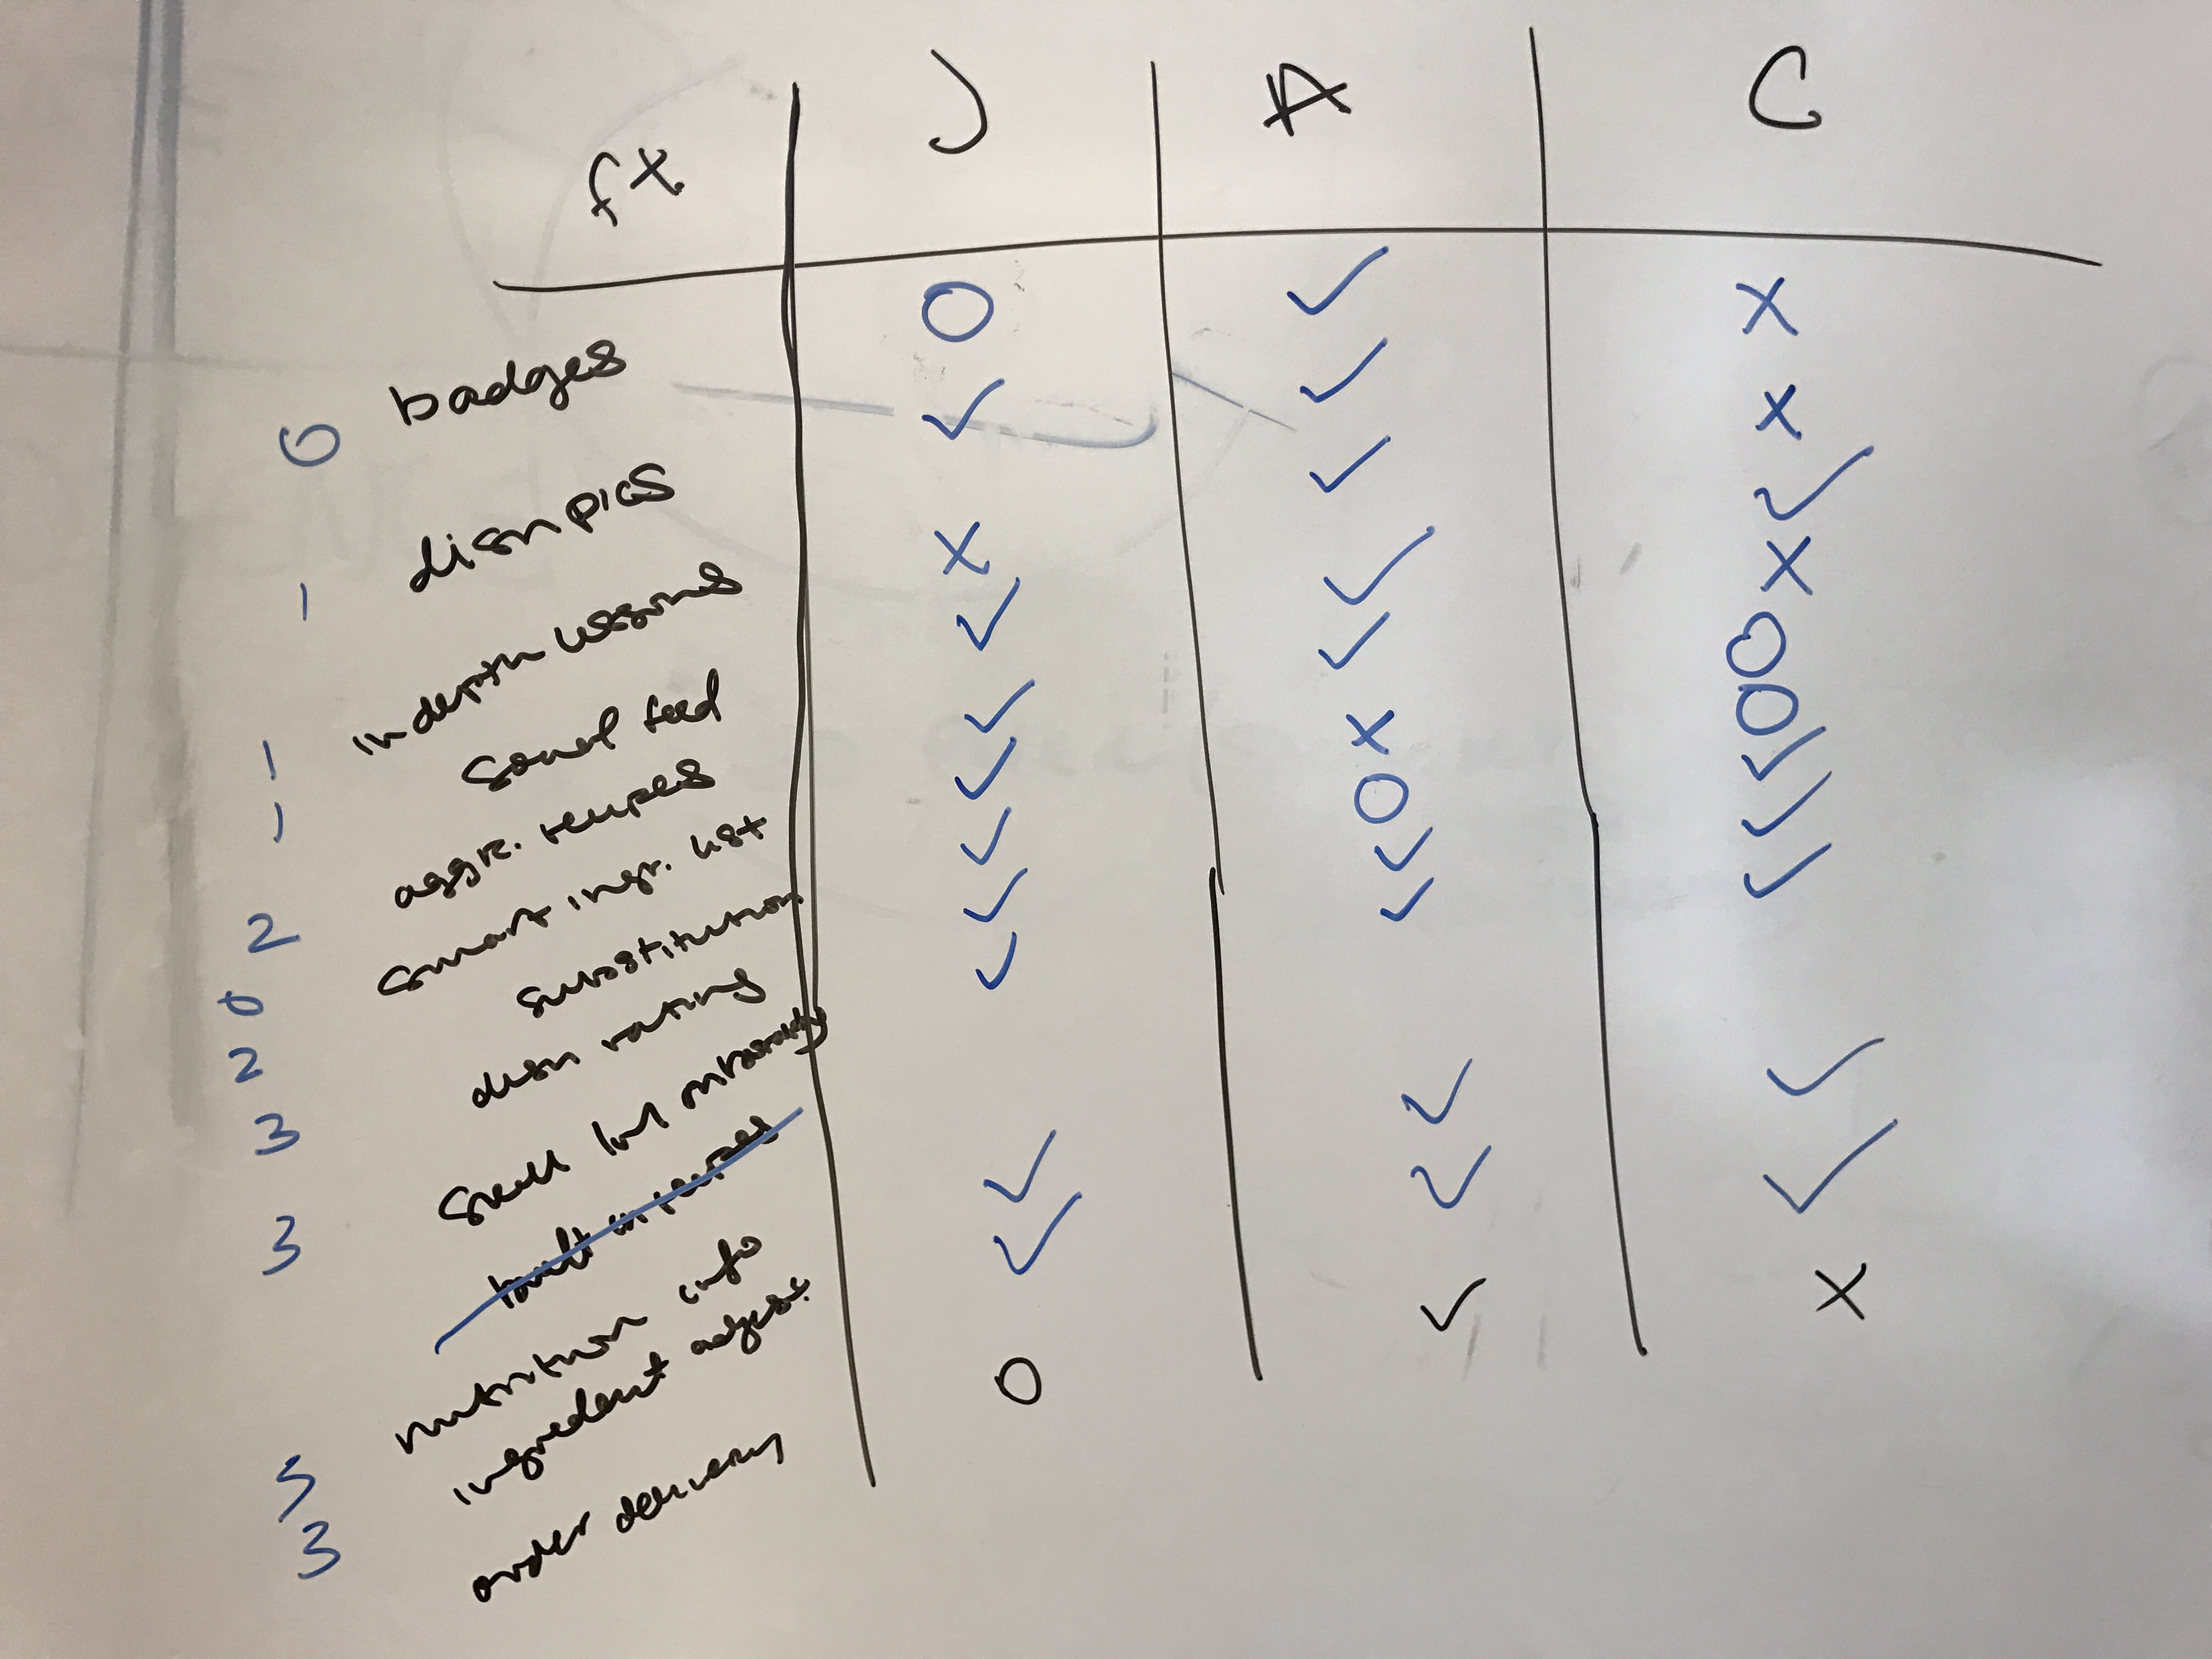 fx J A C
0 badges O ✓ X
1 dish pics ✓ ✓ X
1 in depth lessons X ✓ ✓
1 social feed ✓ ✓ X
2 aggr. recipes ✓ ✓ O
0 smart ingr. list ✓ X O
2 substitution ✓ O ✓
3 dish rating ✓ ✓ ✓
3 skill lvl onboarding ✓ ✓ ✓
built in recipes
3 nutrition info ✓ ✓ ✓
3 ingredient adjust. ✓ ✓ ✓
order delivery O ✓ X